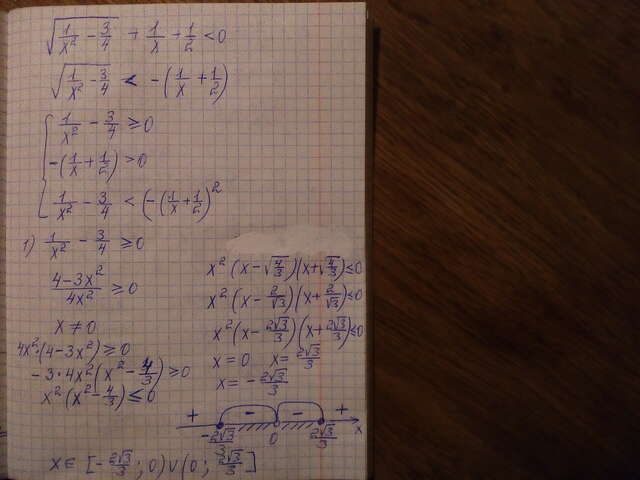 √(1/x² - 3/4) + 1/x + 1/2 < 0
√(1/x² - 3/4) < -(1/x + 1/2)
{ 1/x² - 3/4 ≥ 0
-(1/x + 1/2) > 0
1/x² - 3/4 < (-(1/x + 1/2))²
1) 1/x² - 3/4 ≥ 0
(4-3x²)/(4x²) ≥ 0
x ≠ 0
4x²·(4-3x²) ≥ 0
-3·4x²(x² - 4/3) ≥ 0
x²(x² - 4/3) ≤ 0
x²(x - √(4/3))(x + √(4/3)) ≤ 0
x²(x - 2/√3)(x + 2/√3) ≤ 0
x²(x - 2√3/3)(x + 2√3/3) ≤ 0
x = 0 x = 2√3/3
x = -2√3/3
+ - - +
-2√3/3 0 2√3/3 x
x ∈ [-2√3/3; 0) ∪ (0; 2√3/3]